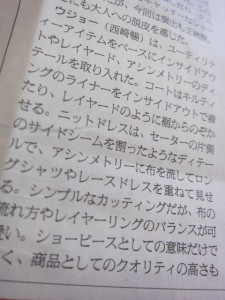 も大人への脱皮を感じた。
ウジョー（西崎暢）は、ユーティリテ
ィーアイテムをベースにインサイドアウ
トやレイヤード、アシンメトリーのディ
テールを取り入れた。コートはキルティ
ングのライナーをインサイドアウトで着
たり、レイヤードのように裾からのぞか
せる。ニットドレスは、セーターの片側
のサイドシームを割ったようなディテー
ルで、アシンメトリーに布を流してロン
グシャツやレースドレスを重ねて見せ
る。シンプルなカッティングだが、布の
流れ方やレイヤーリングのバランスが可
愛い。ショーピースとしての意味だけで
く、商品としてのクオリティの高さも